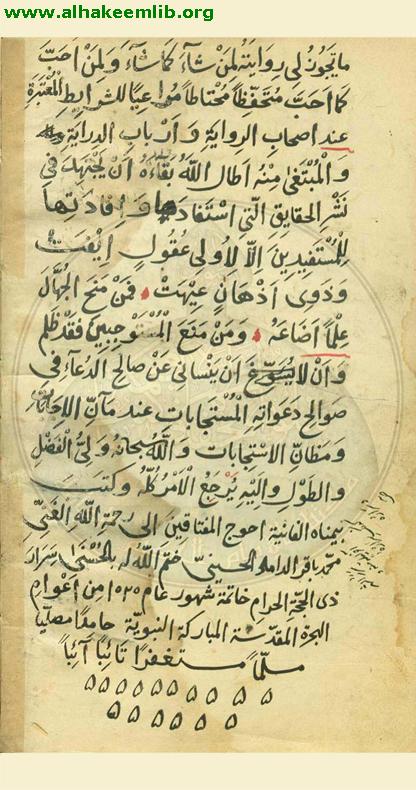 www.alhakeemlib.org
ما تجوز لي روايته لمن شآء كما شآء ولمن احب
كما احب متحفظاً محتاطاً مراعياً للشرايط المعتبرة
عند اصحاب الرواية و أرباب الدراية
والمبتغى منه اطال الله بقاءه ان يجتهد في
نشر الحقايق التي استفادها و افادتها
للمستفيدين الا لاولى عقول
و ذوى اذهان فمن منح الجهال
علماً أضاعه ومن منع المستوجبين فقد ظلم
و ان لا ان ينساني عن صالح الدعآء في
صوالح دعواته المستجابات عند مآن
و مظان الاستجابات والله سبحانه ولي الفضل
والطول واليه يرجع الامر كله وكتب
بيمناه الفانية احوج المفتاقين الى رحمة الله الغني
محمد باقر الداماد الحسيني ختم الله له بالحسنى
ذى الحجة الحرام خاتمة شهور عام من اعوام
الهجرة المقدسة المباركة النبوية حامداً مصلياً
مسلماً مستغفراً تائباً آئباً